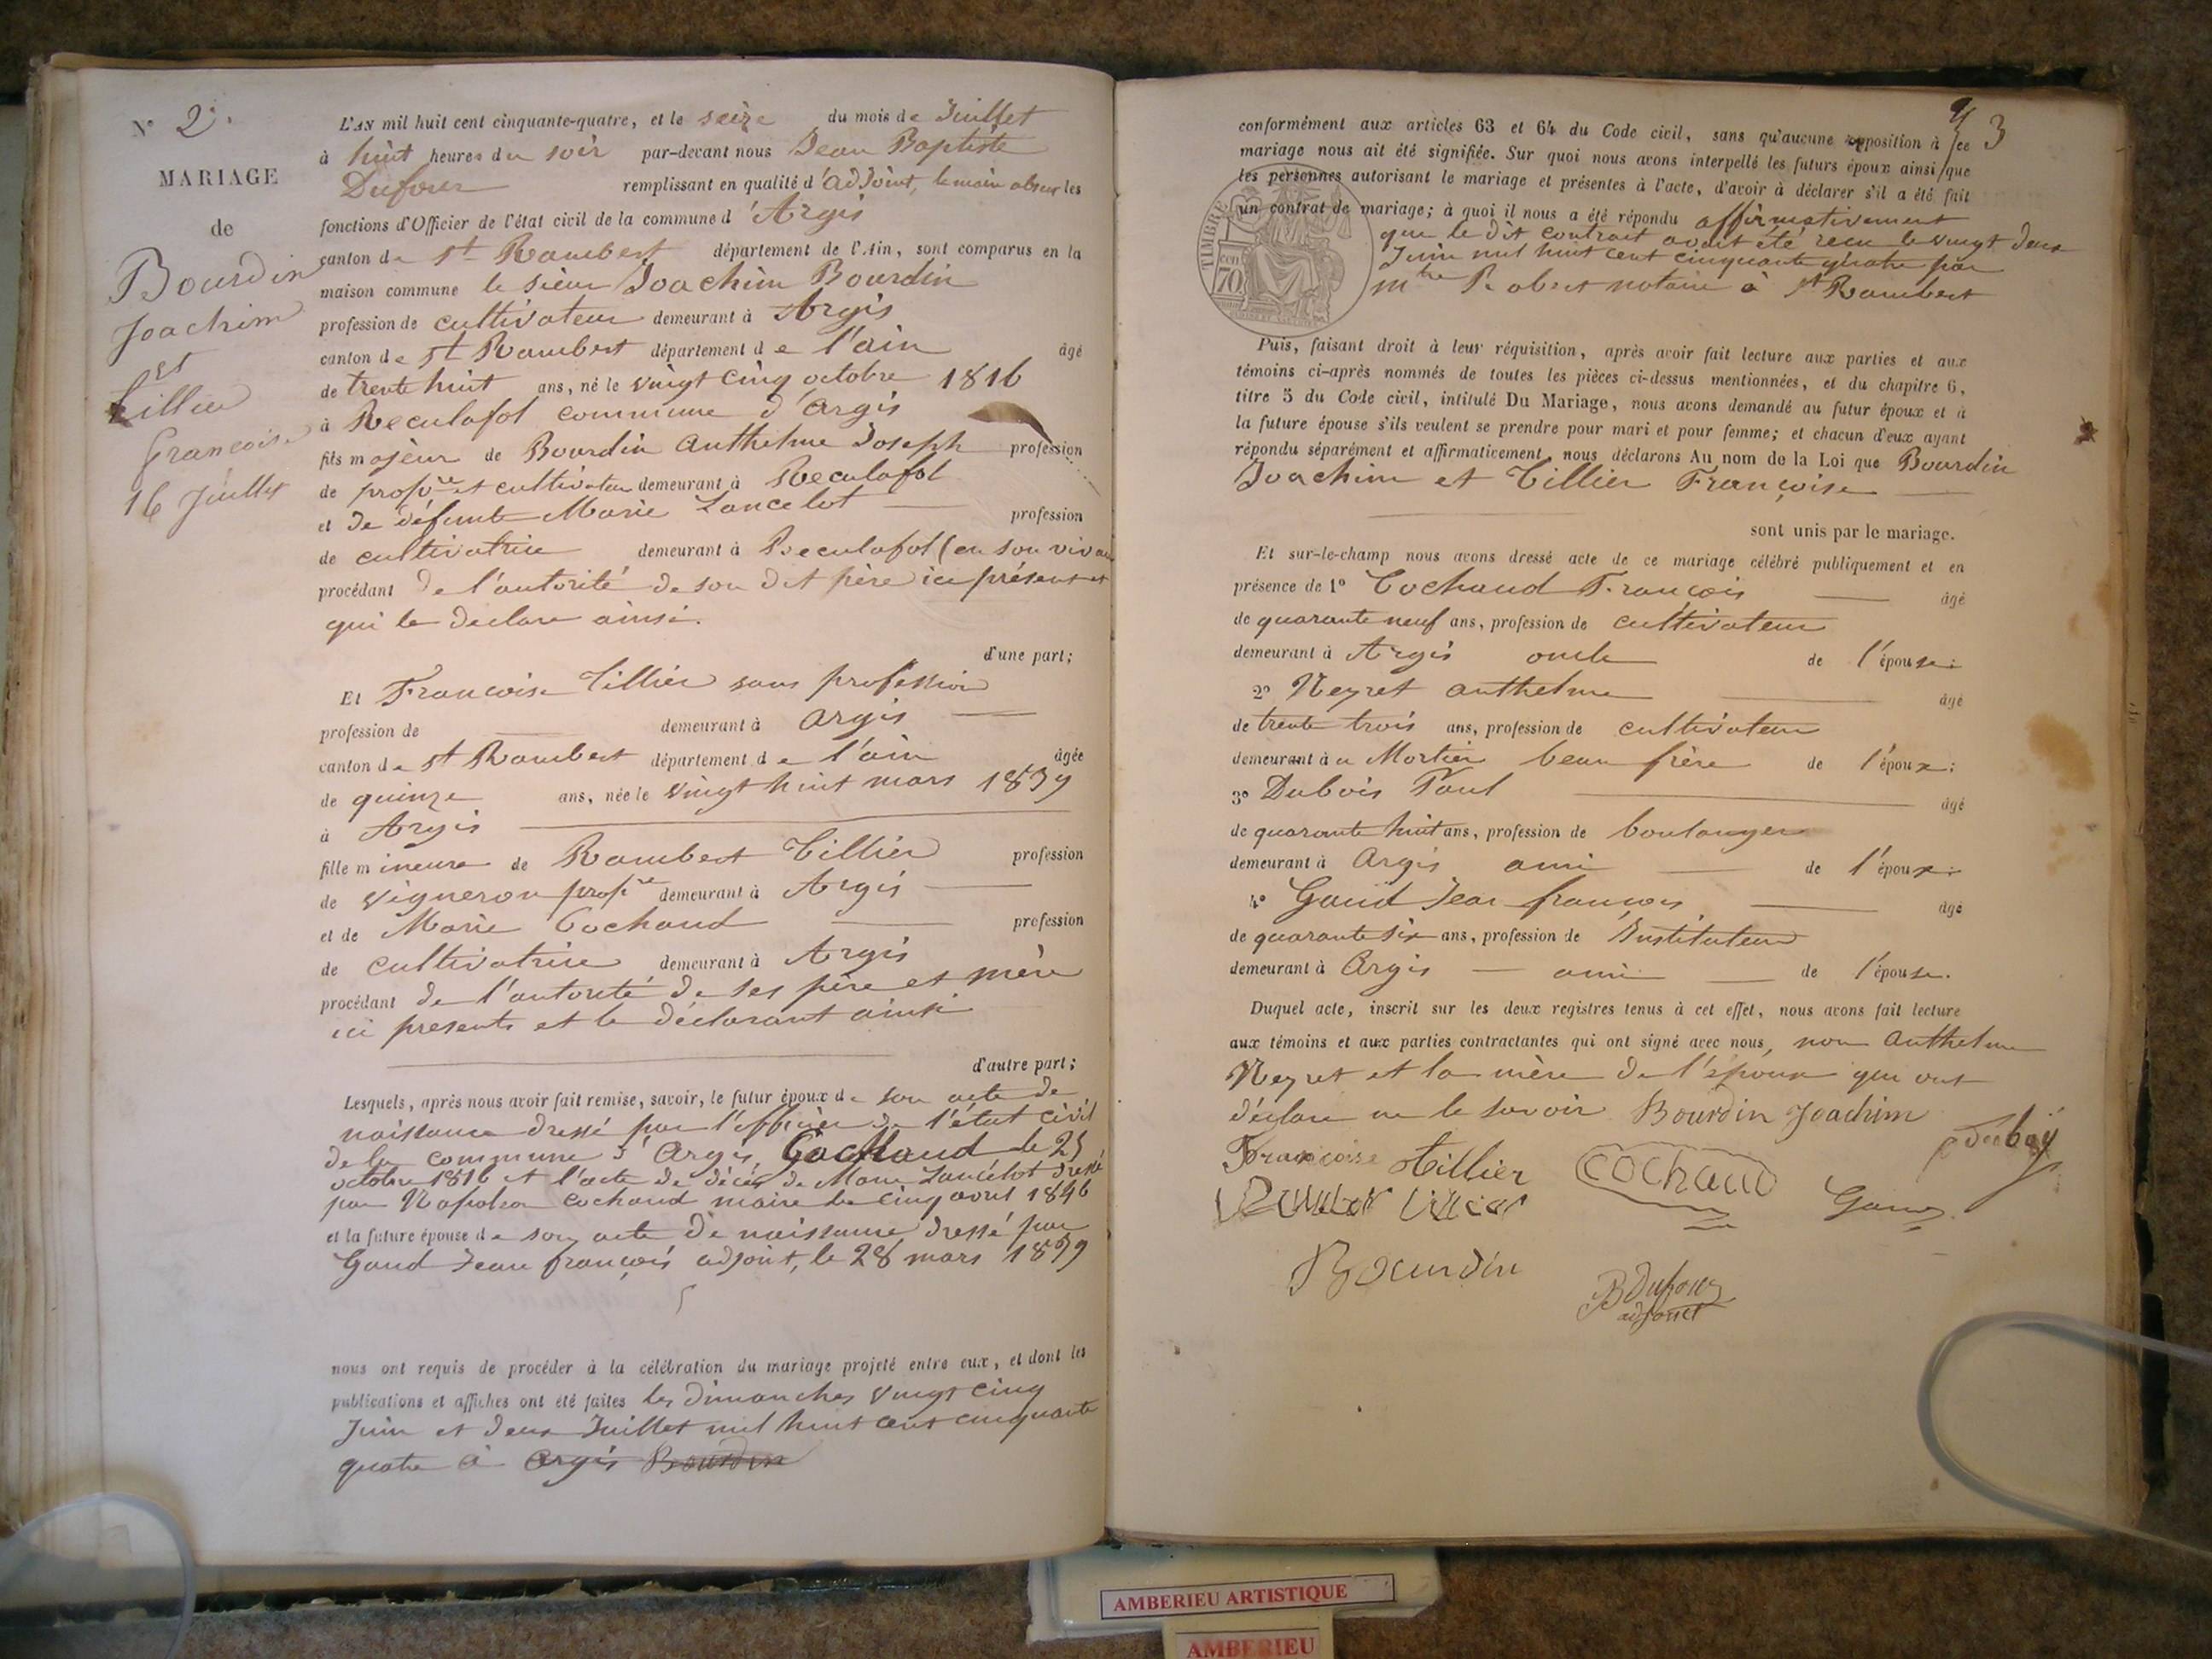 N° 2.
MARIAGE
de
Bourdin
Joachim
et
Tillier
Francoise
16 Juillet
L'AN mil huit cent cinquante-quatre, et le seize du mois de Juillet
à huit heures du soir par-devant nous Jean Baptiste
Dufour remplissant en qualité d'adjoint, le maire absent les
fonctions d'Officier de l'état civil de la commune d'Argis
canton de St Rambert département de l'Ain, sont comparus en la
maison commune le sieur Joachim Bourdin
profession de cultivateur demeurant à Argis
canton de St Rambert département de l'ain âgé
de trente huit ans, né le vingt cinq octobre 1816
à Reculafol commune d'Argis
fils majeur de Bourdin Anthelme Joseph profession
de prop.re et cultivateur demeurant à Reculafol
et de défunte Marie Lancelot profession
de cultivatrice demeurant à Reculafol (en son vivan
procédant de l'autorité de son dit père ici présent et
qui le declare ainsi.
d'une part;
Et Francoise Tillier sans profession
profession de demeurant à argis
canton de St Rambert département de l'ain âgée
de quinze ans, née le vingt huit mars 1839
à Argis
fille mineure de Rambert Tillier profession
de vigneron prop.re demeurant à Argis
et de Marie Cochaud profession
de cultivatrice demeurant à Argis
procédant de l'autorité de ses père et mère
ici presents et le déclarant ainsi
d'autre part;
Lesquels, après nous avoir fait remise, savoir, le futur époux de son acte de
naissance dressé par l'officier de l'état civil
de la commune d'Argis, Cochaud le 25
octobre 1816 et l'acte de décès de Marie Lancelot dressé
par Napoleon Cochaud maire le cinq avril 1846
et la future épouse de son acte de naissance dressé par
Gaud Jean françois adjoint, le 28 mars 1839
nous ont requis de procéder à la célébration du mariage projeté entre eux, et dont les
publications et affiches ont été faites les dimanches vingt cinq
Juin et deux Juillet mil huit cent cinquante
quatre à Argis Bourdin
3
conformément aux articles 63 et 64 du Code civil, sans qu'aucune opposition à ce
mariage nous ait été signifiée. Sur quoi nous avons interpellé les futurs époux ainsi que
les personnes autorisant le mariage et présentes à l'acte, d'avoir à déclarer s'il a été fait
un contrat de mariage; à quoi il nous a été répondu affirmativement
que le dit contrat avait été recu le vingt deux
Juin mil huit cent cinquante quatre par
mtre Robert notaire à St Rambert
TIMBRE
70
Puis, faisant droit à leur réquisition, après avoir fait lecture aux parties et aux
témoins ci-après nommés de toutes les pièces ci-dessus mentionnées, et du chapitre 6,
titre 5 du Code civil, intitulé Du Mariage, nous avons demandé au futur époux et à
la future épouse s'ils veulent se prendre pour mari et pour femme; et chacun d'eux ayant
répondu séparément et affirmativement, nous déclarons Au nom de la Loi que Bourdin
Joachim et Tillier Françoise
sont unis par le mariage.
Et sur-le-champ nous avons dressé acte de ce mariage célébré publiquement et en
présence de 1° Cochaud François âgé
de quarante neuf ans, profession de cultivateur
demeurant à Argis oncle de l'épouse:
2° Neyret anthelme âgé
de trente trois ans, profession de cultivateur
demeurant à u Mortier beau frère de l'époux:
3° Dubois Paul âgé
de quarante huit ans, profession de boulanger
demeurant à Argis ami de l'époux:
4° Gaud Jean francois âgé
de quarante six ans, profession de Instituteur
demeurant à Argis ami de l'épouse.
Duquel acte, inscrit sur les deux registres tenus à cet effet, nous avons fait lecture
aux témoins et aux parties contractantes qui ont signé avec nous, non Anthelme
Neyret et la mère de l'épouse qui ont
déclare ne le savoir Bourdin Joachim
Francoise tillier COChAUD
Bourdin
B Dufour
adjoint
AMBERIEU ARTISTIQUE
AMBERIEU